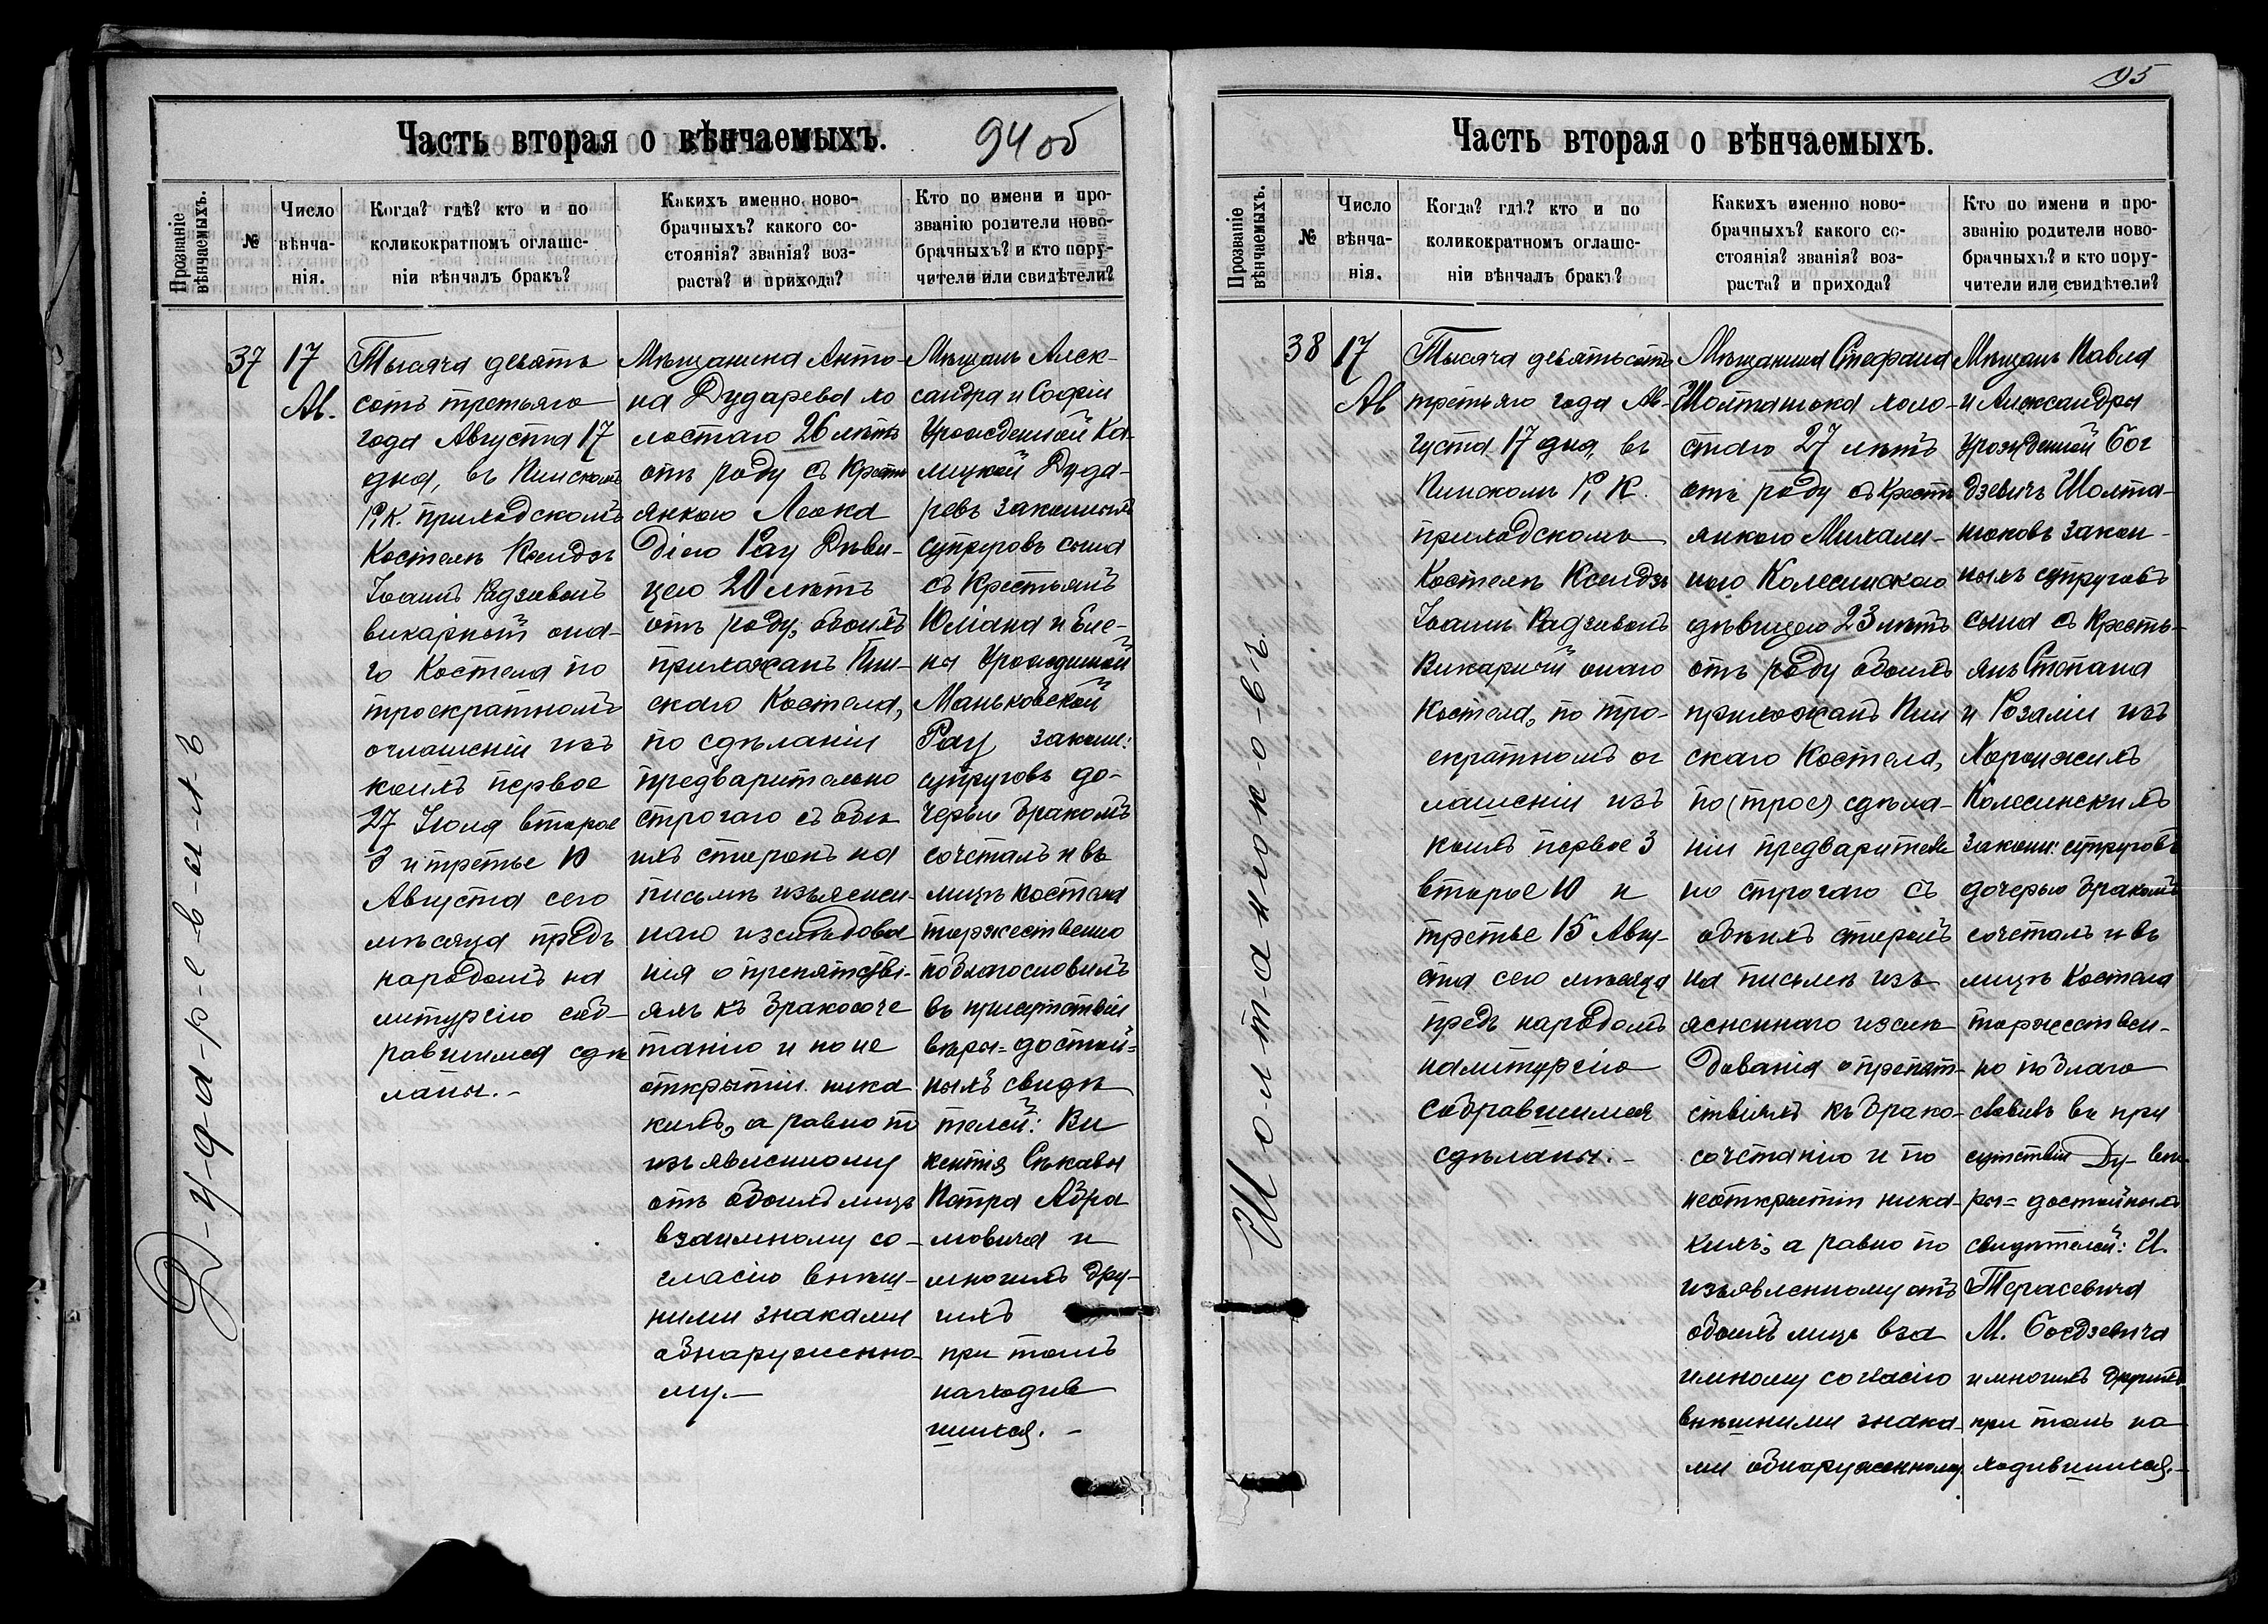 Часть вторая о вѣнчаемыхъ.
94 об
Прозваніе вѣнчаемыхъ.
№
Число вѣнча-нія.
Когда? гдѣ? кто и по
коликократномъ оглаше-
ніи вѣнчалъ бракъ?
Какихъ именно ново-
брачныхъ? какого со-
стоянія? званія? воз-
раста? и прихода?
Кто по имени и про-
званію родители ново-
брачныхъ? и кто пору-
чители или свидѣтели?
Д-у-д-а-р-е-в-ы-х-ъ
37
17
Ав.
Тысяча девять
сотъ третьяго
года Августа 17
дня, въ Пинскомъ
Р. К. приходскомъ
Костелѣ Ксендзъ
Іоаннъ Радзивонъ
викарный она-
го Костела по
троекратномъ
оглашеніи изъ
коихъ первое
27 Іюля второе
3 и третье 10
Августа сего
мѣсяца предъ
народомъ на
литургію соб-
равшимся сдѣ
ланы.-
Мѣщанина Анто-
на Дударева хо
лостаго 26 лѣтъ
отъ роду съ Крестья
янкою Леока
діею Рау Дѣви-
цею 20 лѣтъ
отъ роду, обоихъ
прихожанъ Пин-
скаго Костела,
по сдѣланіи
предварительно
строгаго съ обѣ
ихъ сторонъ на
письмѣ изъяснен-
наго изслѣдова
нія о препятстві-
яхъ къ бракосоче
танію и по не
открытіи ника
кихъ, а равно по
изъявленному
отъ обоихъ лицъ
взаимному со-
гласію внѣш-
ними знаками
обнаруженно-
му.-
Мѣщанъ Алек-
сандра и Софіи
Урожденной Ка-
лицкой Дуда-
ревъ законныхъ
супруговъ сына
съ Крестьянъ
Юліана и Еле-
ны Урожденной
Маньковской
Рау законн:
супруговъ до-
черью бракомъ
сочеталъ и въ
лицѣ костела
торжественно
поблагословилъ
въ присутствіи
вѣры=достой=
ныхъ свидѣ
телей: Ви
кентія Сѣкавы
Петра Абра
мовича и
многихъ дру-
гихъ
при томъ
находив
шихся.-
95
Часть вторая о вѣнчаемыхъ.
Прозваніе вѣнчаемыхъ.
№
Число вѣнча-нія.
Когда? гдѣ? кто и по
коликократномъ оглаше-
ніи вѣнчалъ бракъ?
Какихъ именно ново-
брачныхъ? какого со-
стоянія? званія? воз-
раста? и прихода?
Кто по имени и про-
званію родители ново-
брачныхъ? и кто пору-
чители или свидѣтели?
Ш-о-л-т-а-н-ю-к-о-в-ъ
38
17
Ав
Тысяча девятьсотъ
третьяго года Ав-
густа 17 дня, въ
Пинскомъ Р. К.
приходскомъ
Костелѣ Ксендзъ
Іоаннъ Радзивонъ
Викарный онаго
Костела, по тро-
екратномъ ог
лашеніи изъ
коихъ первое 3
второе 10 и
третье 15 Авгу-
ста сего мѣсяца
предъ народомъ
на литургію
собравшимся
сдѣланы.-
Мѣщанина Стефана
Шолтанюка холо-
стаго 27 лѣтъ
отъ роду съ Кресть
янкою Михали-
ною Колесинскою
дѣвицею 23 лѣтъ
отъ роду обоихъ
прихожанъ Пин
скаго Костела,
по (трое) сдѣла-
ніи предварительно
но строгаго съ
обѣихъ сторонъ
на письмѣ изъ
ясненнаго изслѣ
дованія о препят-
ствіяхъ къ брако-
сочетанію и по
неоткрытіи ника-
кихъ; а равно по
изъявленному отъ
обоихъ лицъ вза
имному согласію
внѣшними знака-
ми обнаруженному
Мѣщанъ Павла
и Александры
урожденной Бог
дзевичъ Шолта-
нюковъ закон-
ныхъ супруговъ
сына съ Кресть-
янъ Степана
и Розаліи изъ
Хоронжихъ
Колесинскихъ
законн: супруговъ
дочерью бракомъ
сочеталъ и въ
лицѣ Костела
торжествен-
но поблаго
словилъ въ при
сутствіи вѣ
ры=достойныхъ
свидѣтелей: И.
Терасевича
М. Богдзевича
и многихъ другихъ
при томъ на
ходившихся.-